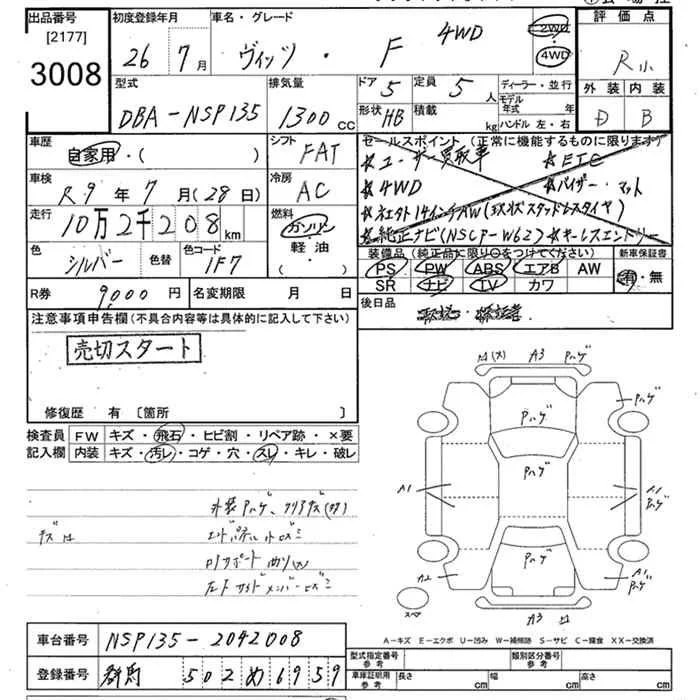 出品番号
[2177]
3008
初度登録年月
26 年 7 月
車名・グレード
ヴィッツ ・ F 4WD
2WD
4WD
評価点
R小
外装 内装
D B
型式
DBA-NSP135
排気量
1300 cc
ドア 5 定員 5 人
形状 HB 積載 kg
ディーラー・並行
モデル年式 年
ハンドル 左・右
車歴
自家用・( )
シフト
FAT
車検
R9 年 7 月 (28 日)
冷房
AC
走行
10万2千208 km
燃料
ガソリン
軽油
( ・ )
色
シルバー
色替
色コード
1F7
セールスポイント (正常に機能するものに限ります)
☆ユーザー買取車 ☆ETC
☆4WD ☆バイザー・マット
☆社外14インチAW(現状スタッドレスタイヤ)
☆純正ナビ(NSCP-W62) ☆キーレスエントリー
装備品 (純正品に限り○をつけてください)
新車保証書
PS PW ABS エアB AW
SR ナビ TV カワ
有・無
R券 9,000 円
名変期限 月 日
後日品
注意事項申告欄(不具合内容等は具体的に記入して下さい)
売切スタート
修復歴 有 〔箇所 〕
検査員
記入欄
FW キズ・飛石・ヒビ割・リペア跡・×要
内装 キズ・汚レ・コゲ・穴・スレ・キレ・破レ
A3 Pハゲ
Pハゲ
Pハゲ
Pハゲ
A1
A1
Pハゲ
Pハゲ
A2
A1
Pハゲ
スペア
A3
外装Pハゲ、クリアハゲ(大)
A-キズ E-エクボ U-凹み W-補修跡 S-サビ C-腐食 XX-交換済
車台番号 NSP135-2042008
登録番号 群馬 502 め 6959
型式指定番号
参考
類別区分番号
参考
車庫証明用
参考
長さ cm 幅 cm 高さ cm